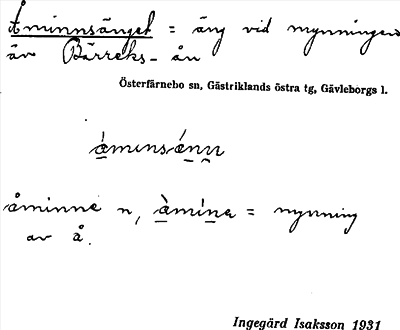 Åminnsänget = äng vid mynningen
av Bärreks-ån
Österfärnebo sn, Gästriklands östra tg, Gävleborgs l.
åminne n, = mynning
av å.
Ingegärd Isaksson 1931